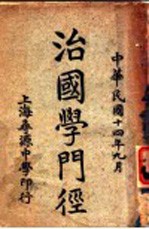 中華民國十四年九月
治國學門徑
上海泰源中學印行